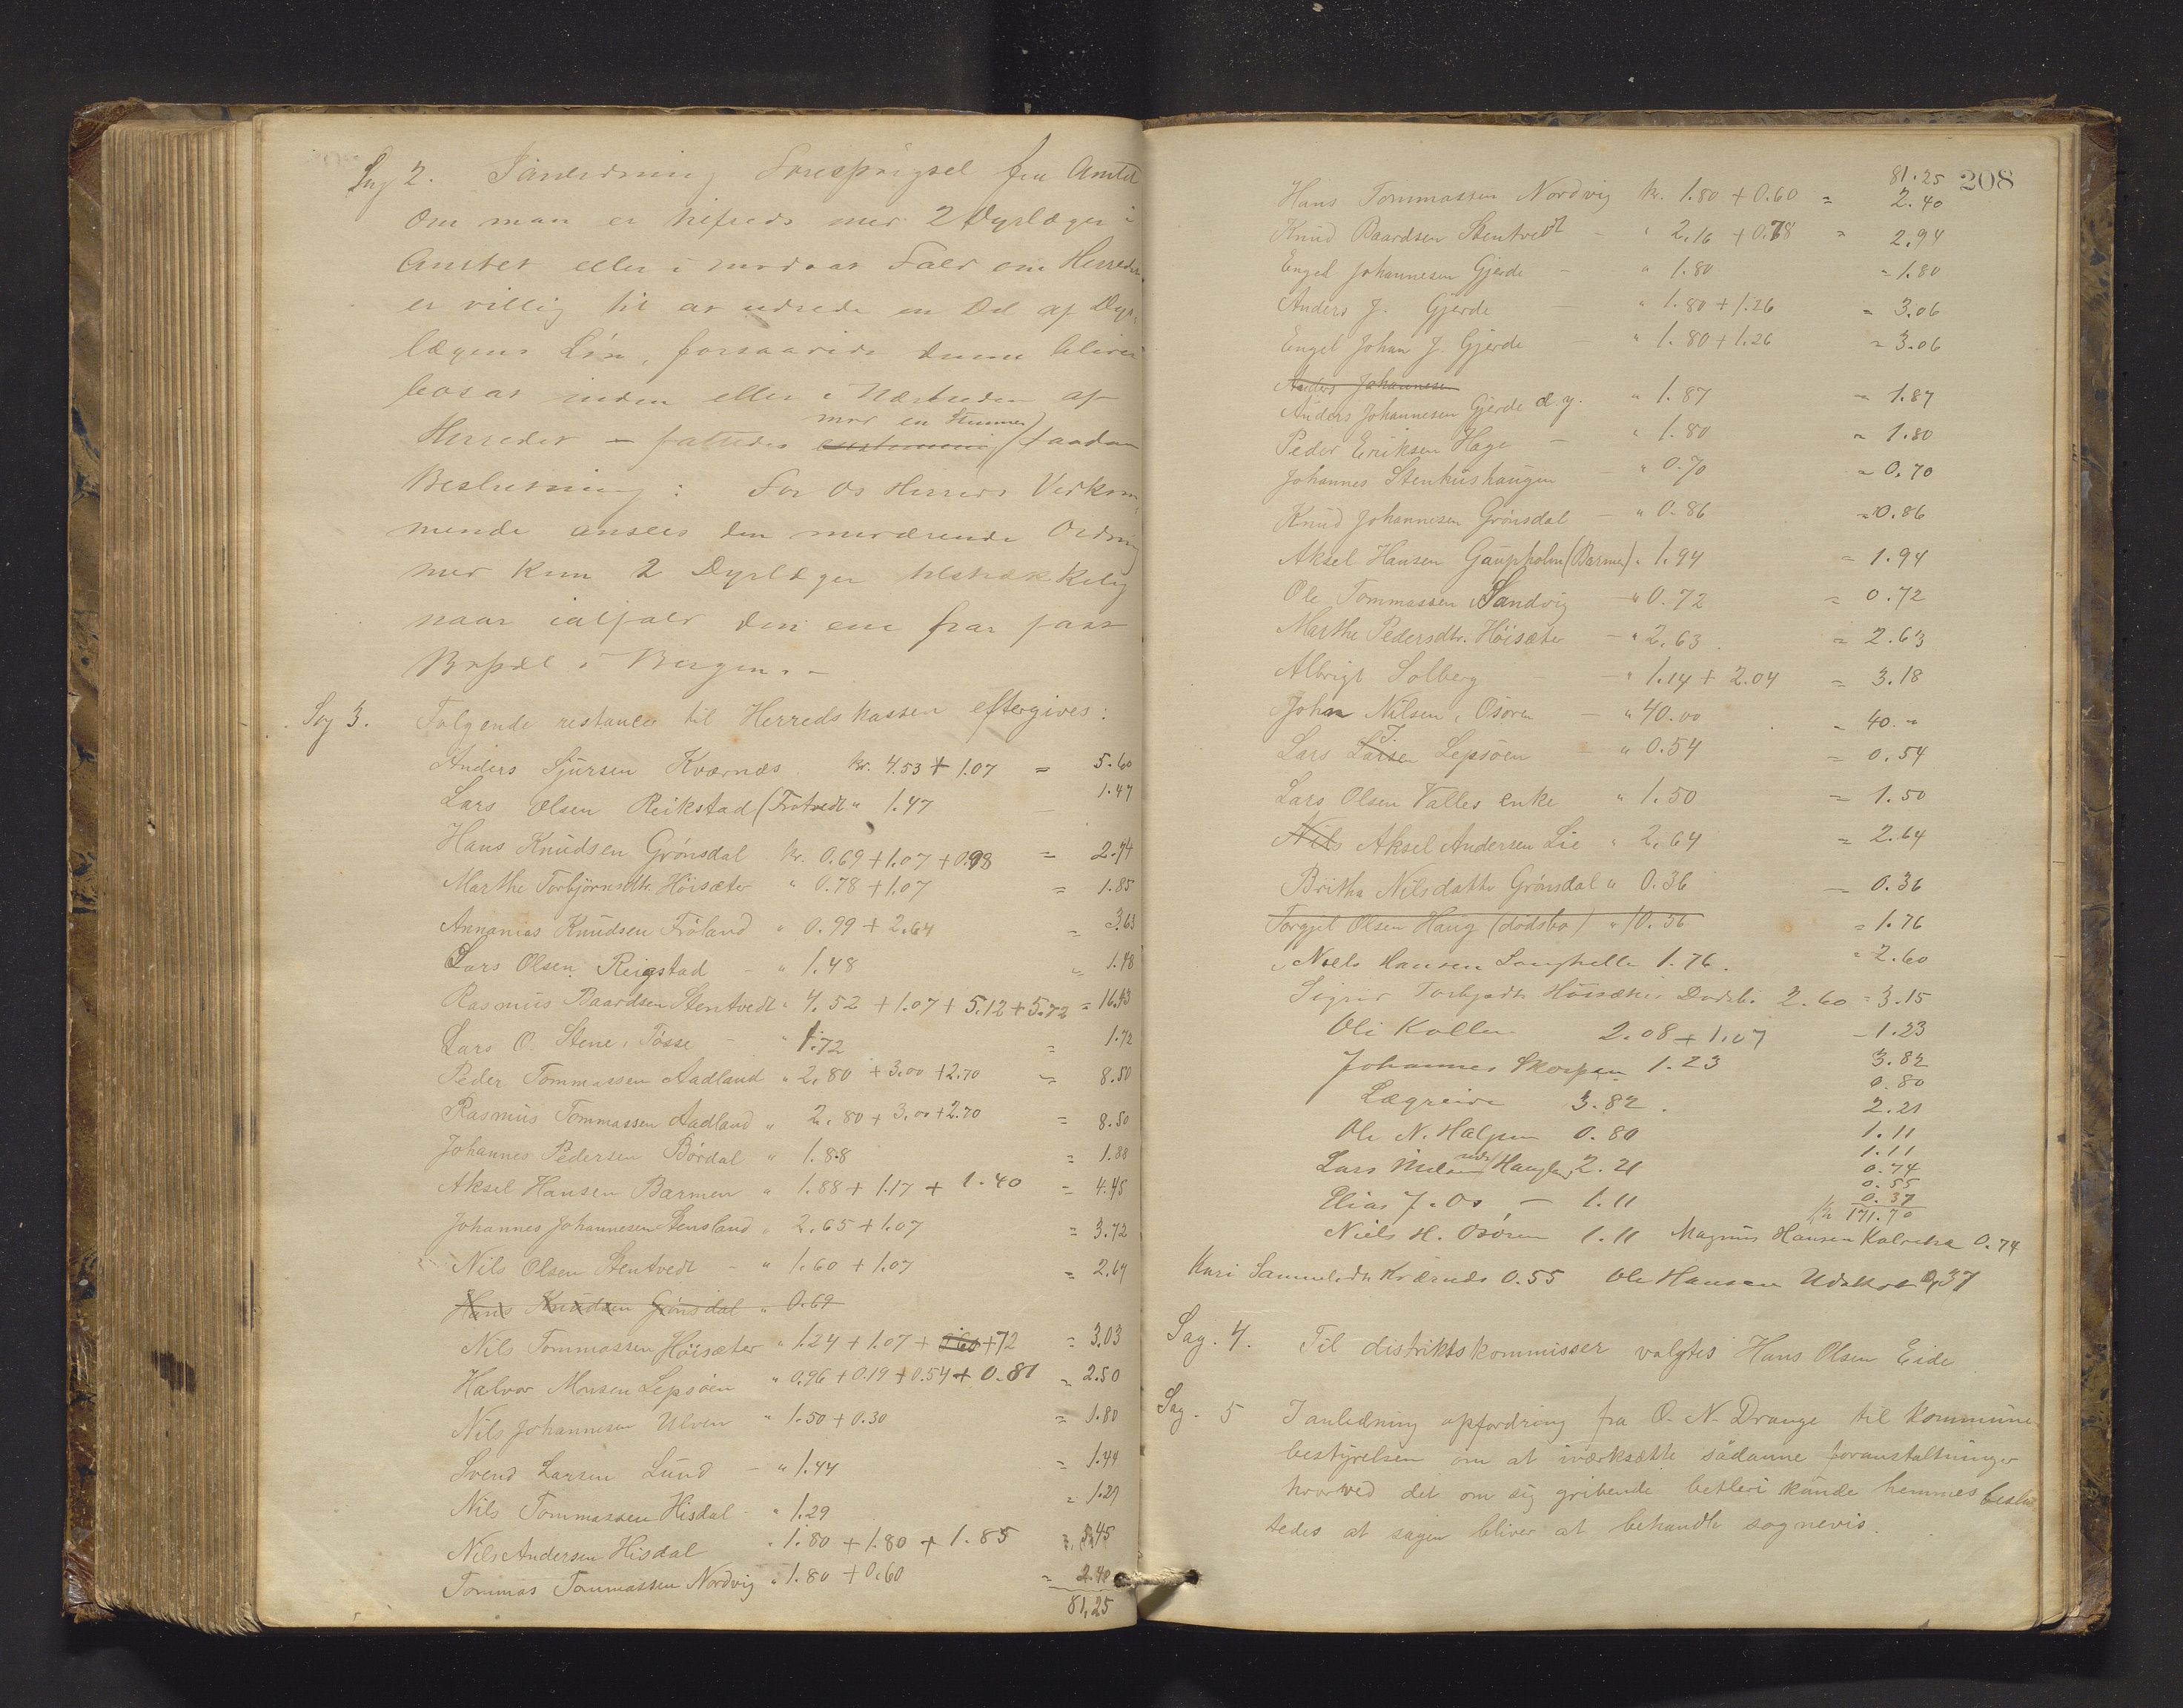 Sag 2. I anledning Forespørgsel fra Amtet
om man er tilfreds med 2 Dyrlæger i
Amtet eller i modsat Fald om Herredet
er villig til at udrede en Del af Dyr-
lægens Løn, forsaavidt denne bliver
bosat inden eller i Nærheden af
Herredet – fattedes med en Stemmer saadan
Beslutning: For Os Herreds Vedkom-
mende ansees den nuværende Ordning
med kun 2 Dyrlæger tilstrækkelig
naar ialfald den ene har fast
Bopæl i Bergen. –
Sag 3. Følgende restancer til Herredskassen eftergives:
Anders Sjursen Kværnæs kr. 4.53 + 1.07 = 5.60
Lars Olsen Reikstad (Trotvedt " 1.47 – 1.47
Hans Knudsen Grønsdal kr. 0.69 + 1.07 + 0.98 = 2.74
Marthe Torbjörnsdtr. Höisæter " 0.78 + 1.07 = 1.85
Annanias Knudsen Fröland " 0.99 + 2.64 = 3.63
Lars Olsen Reigstad – " 1.48 " 1.48
Rasmus Baardsen Stentvedt " 4.52 + 1.07 + 5.12 + 5.72 = 16.43
Lars O. Stene, Tösse – " 1.72 = 1.72
Peder Tommassen Aadland " 2.80 + 3.00 + 2.70 = 8.50
Rasmus Tommassen Aadland " 2.80 + 3.00 + 2.70 = 8.50
Johannes Pedersen Bördal " 1.88 = 1.88
Aksel Hansen Barmen " 1.88 + 1.17 + 1.40 = 4.45
Johannes Johannesen Stensland " 2.65 + 1.07 = 3.72
Nils Olsen Stentvedt – " 1.60 + 1.07 = 2.67
Hans Knudsen Grönsdal " 0.69
Nils Tommassen Höisæter " 1.24 + 1.07 + 72 = 3.03
Halvor Monsen Lepsöen " 0.96 + 0.19 + 0.54 + 0.81 = 2.50
Nils Johannesen Ulven " 1.50 + 0.30 = 1.80
Svend Larsen Lund – " 1.44 = 1.44
Nils Tommassen Hisdal – " 1.29 = 1.29
Nils Andersen Hisdal " 1.80 + 1.80 + 1.85 = 5.45
Tommas Tommassen Nordvig " 1.80 + 0.60 = 2.40
81,25
208
81.25
Hans Tommassen Nordvig kr. 1.80 + 0.60 = 2.40
Knud Baardsen Stentvedt – " 2.16 + 0.78 = 2.94
Engel Johannesen Gjerde – " 1.80 = 1.80
Anders J. Gjerde – " 1.80 + 1.26 = 3.06
Engel Johan J. Gjerde – " 1.80 + 1.26 = 3.06
Anders Johannesen
Anders Johannesen Gjerde d.y. " 1.87 = 1.87
Peder Eriksen Hage – " 1.80 = 1.80
Johannes Stenhushaugen – " 0.70 = 0.70
Knud Johannesen Grönsdal – " 0.86 = 0.86
Aksel Hansen Gaupholm (Barmen) " 1.94 = 1.94
Ole Tommassen Sandvig – " 0.72 = 0.72
Marthe Pedersdtr. Höisæter – " 2.63 = 2.63
Albrigt Solberg – – " 1.14 + 2.04 = 3.18
Johan Nilsen, Osören – " 40.00 = 40.–
Lars J. Larsen Lepsöen – " 0.54 = 0.54
Lars Olsen Valles enke " 1.50 = 1.50
Nils Aksel Andersen Lie " 2.64 = 2.64
Britha Nilsdatter Grönsdal " 0.36 – 0.36
Torgjel Olsen Haug (dödsbo) " 10.56 = 1.76
Niels Hansen Langhelle 1.76. = 2.60
Sigrid Torbjsdtr Höisæter Dødsbo 2.60 = 3.15
Oli Kollen 2.08 + 1.07 – 1.23
Johannes Skorpen 1.23 3.82
Lægreide 3.82. 0.80
2.21
Ole N. Halgjem 0.80 1.11
Lars Nielsen Hauglen 2.21 1.11
0.74
0.55
Elias J. Os, – 1.11 0.37
kr 171.70
Niels H. Osören 1.11 Magnus Hansen Kalvetræ 0.74
Kari Samuelsdtr Kværnæs 0.55 Ole Hansen 0,37
Sag. 4. Til distriktskommissær valgtes Hans Olsen Eide
Sag. 5 I anledning opfordring fra O. N. Drange til Kommune
bestyrelsen om at iværksætte sådanne foranstaltninger
hvorved det om sig gribende betleri kunde hemmes beslut
tedes at sagen bliver at behandle sognevis.